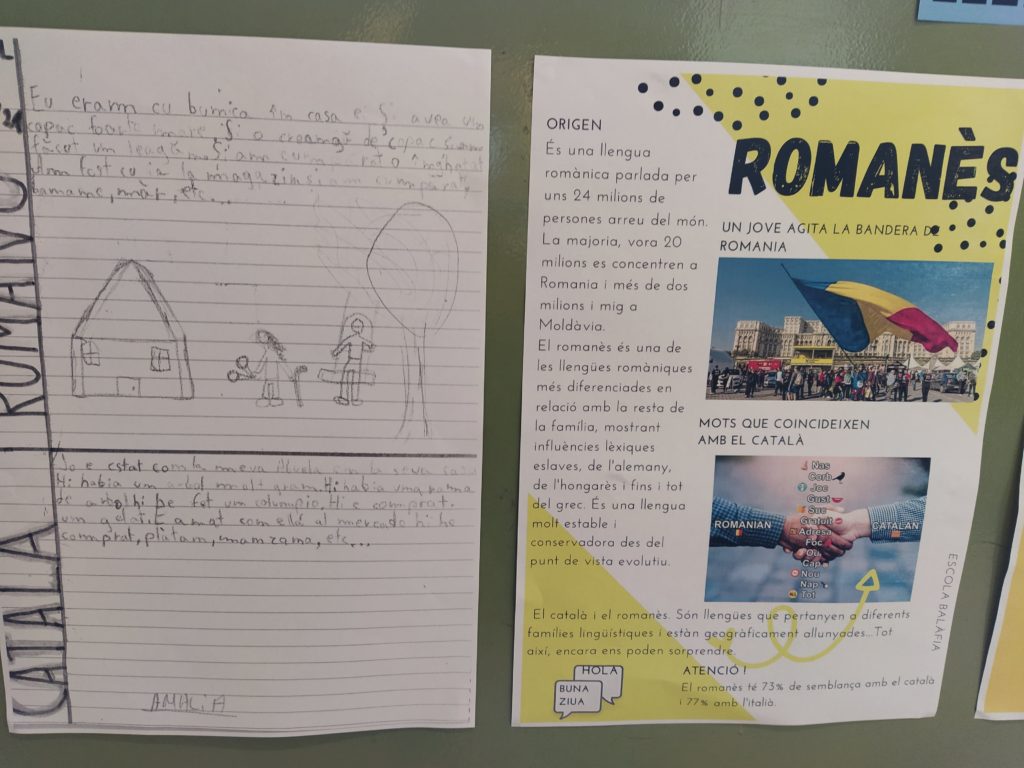 CATALÀ ROMANÈ
Eu eram cu bunica în casa ei Și avea un
copac foarte mare Și o creangă de copac
făcut un leagă Și am cumpărat o înghețat
Am fost cu ia la magazin și am cumpărat,
banane, măr, etc...
Jo e estat com la meva illuela en la seva casa
Hi habia un arbol molt gram. Hi habia una rama
de arbol hi he fet um columpio. Hi e comprat
um gelat. E amat com ella al mercado hi he
comprat, plàtam, mamzama, etc...
AMALIA
ROMANÈS
ORIGEN
És una llengua
romànica parlada per
uns 24 milions de
persones arreu del món.
La majoria, vora 20
milions es concentren a
Romania i més de dos
milions i mig a
Moldàvia.
El romanès és una de
les llengües romàniques
més diferenciades en
relació amb la resta de
la família, mostrant
influències lèxiques
eslaves, de l'alemany,
de l'hongarès i fins i tot
del grec. És una llengua
molt estable i
conservadora des del
punt de vista evolutiu.
UN JOVE AGITA LA BANDERA DE
ROMANIA
MOTS QUE COINCIDEIXEN
AMB EL CATALÀ
ROMANIAN
CATALAN
Nas
Corb
Joc
Gust
Suc
Gratuit
Adresa
Foc
Ou
Cap
Nou
Nap
Tot
ESCOLA BALÀFIA
El català i el romanès. Són llengües que pertanyen a diferents
famílies lingüístiques i estàn geogràficament allunyades...Tot
així, encara ens poden sorprendre.
HOLA
BUNA
ZIUA
ATENCIÓ !
El romanès té 73% de semblança amb el català
i 77% amb l'italià.